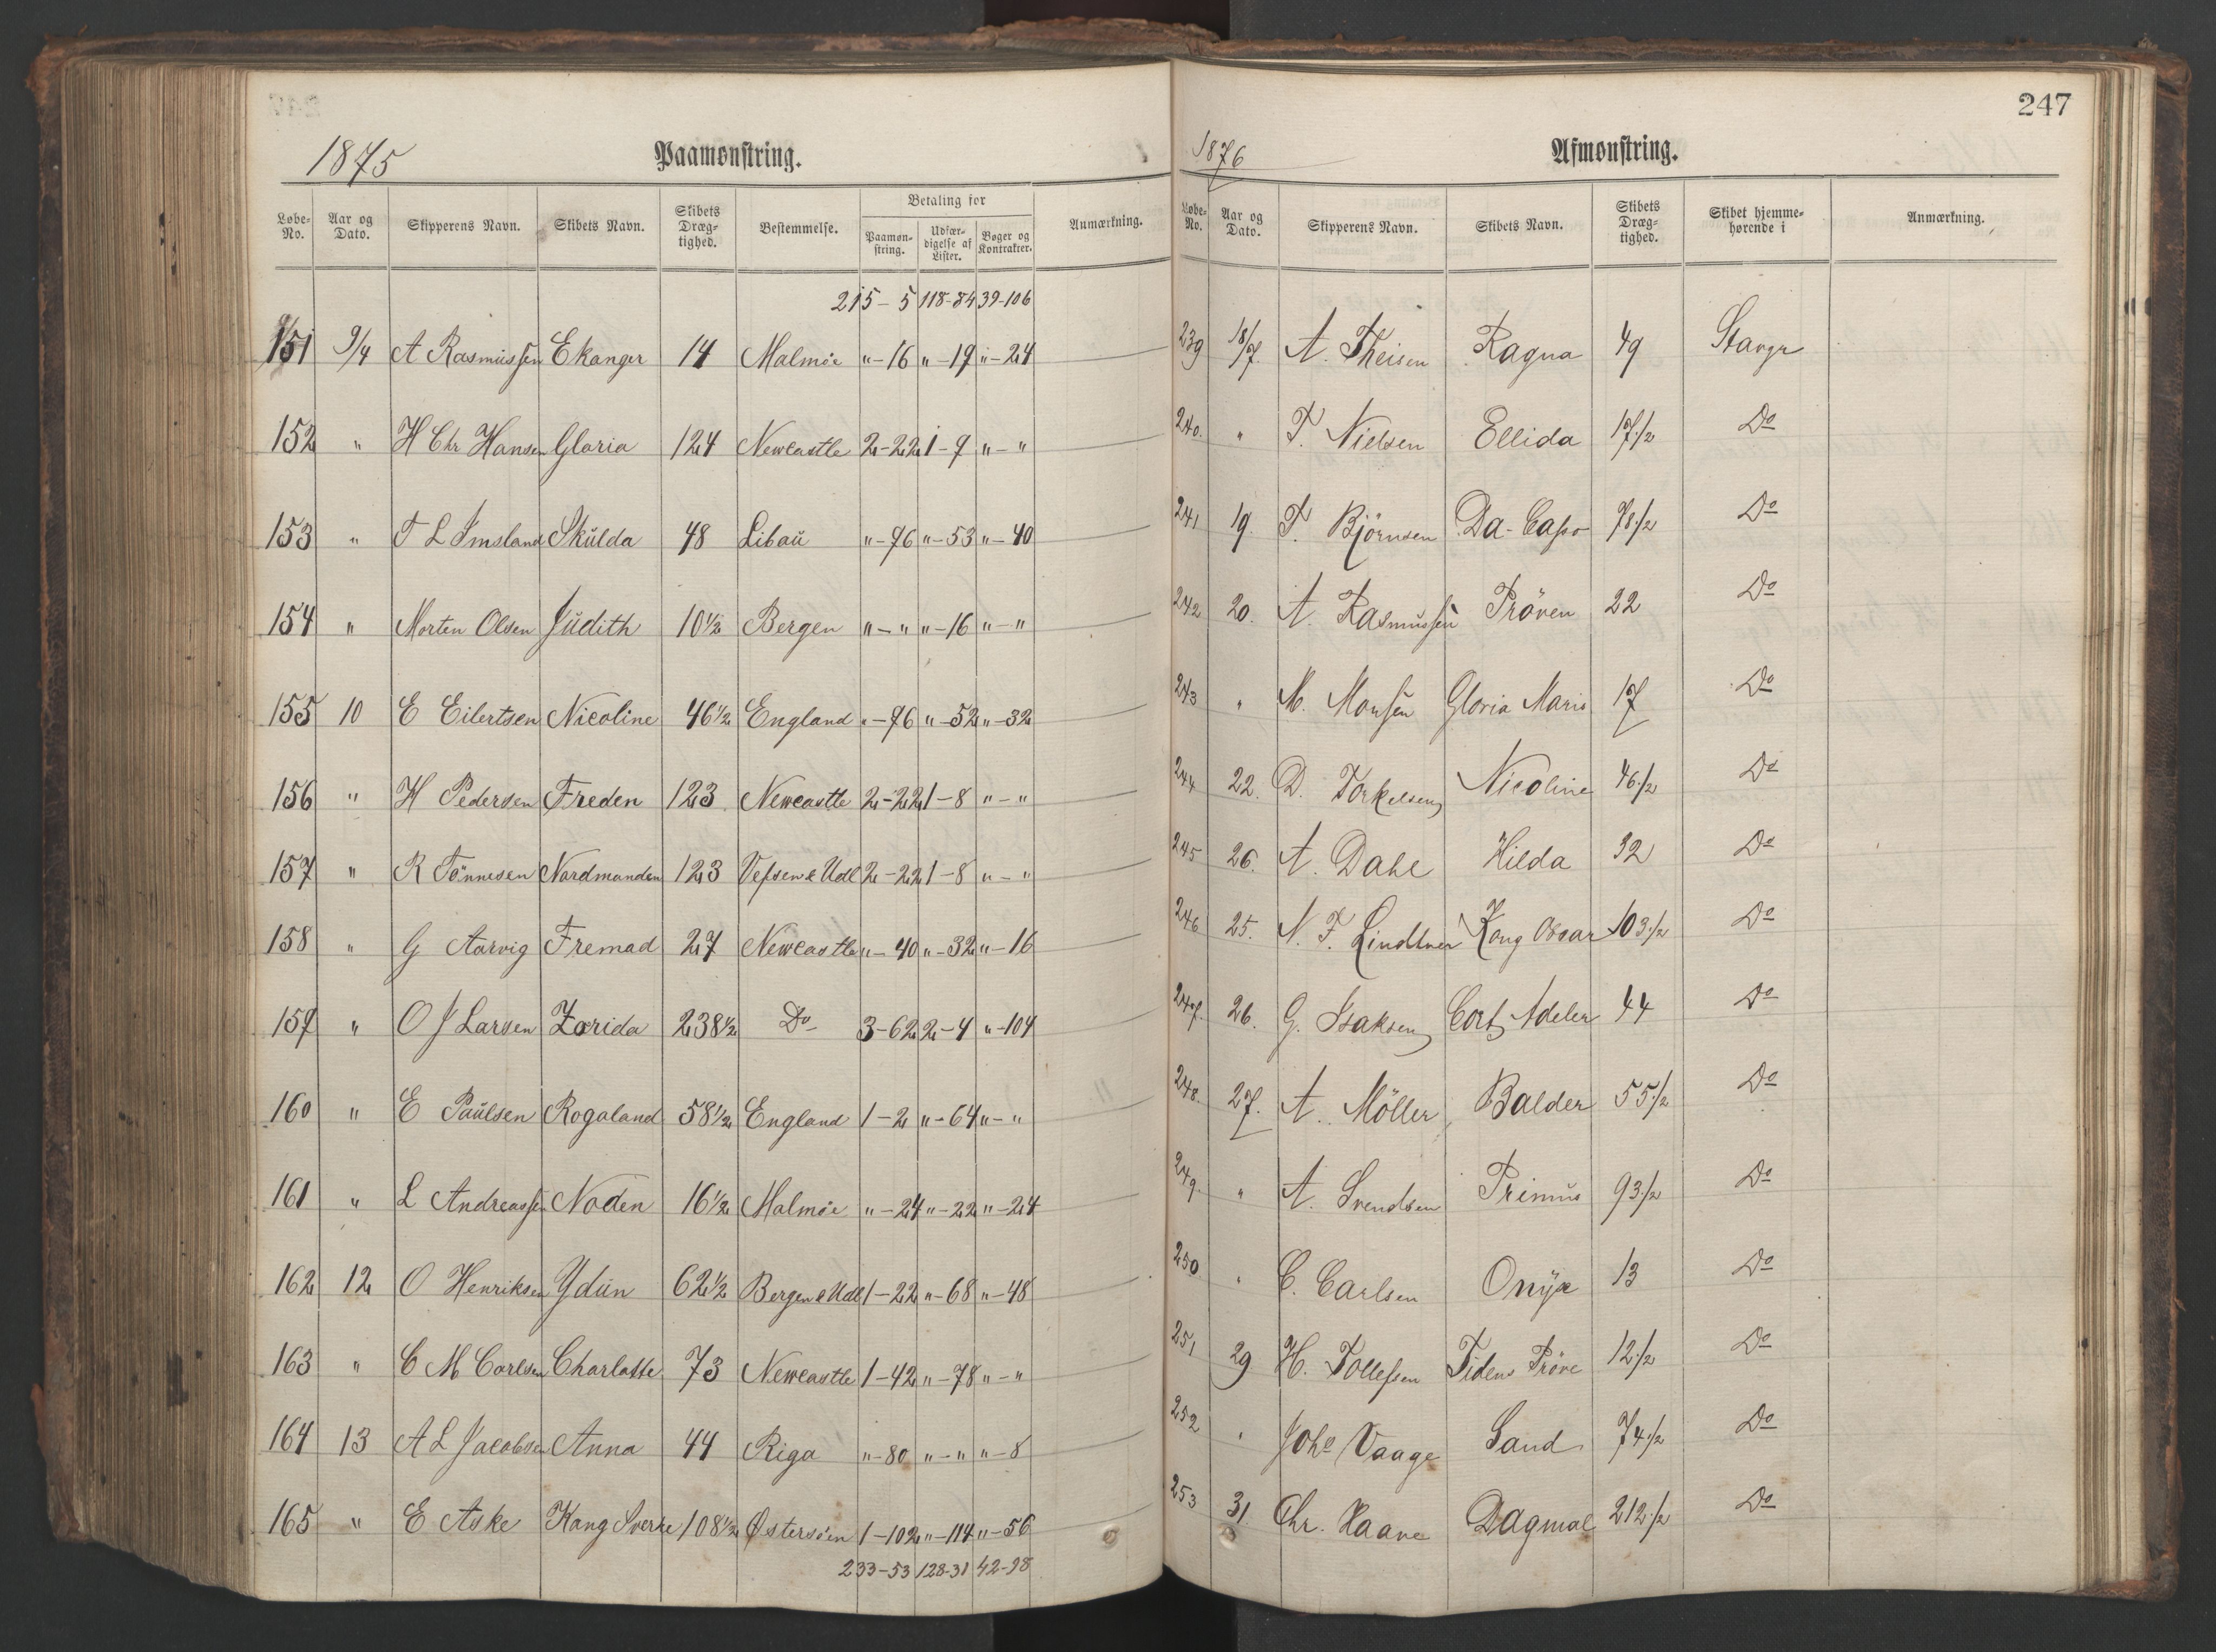 1875 Paamønstring.
Løbe-No. Aar og Dato. Skipperens Navn. Skibets Navn. Skibets Dræg-tighed. Bestemmelse. Betaling for Paamøn-string. Udfær-digelse af Lister. Bøger og Kontrakter. Anmærkning.
215-5 118-84 39-106
151 9/4 A Rasmussen Ekanger 14 Malmöe "-16 "-19 "-24
152 " H Chr Hansen Gloria 124 Newcastle 2-22 1-9 "-"
153 " T L Imsland Skulda 48 Libau "-96 "-53 "-40
154 " Morten Olsen Judith 10 1/2 Bergen "-" "-16 "-"
155 10 E Eilertsen Nicoline 46 1/2 England "-96 "-52 "-32
156 " H Pedersen Freden 123 Newcastle 2-22 1-8 "-"
157 " R Tönnesen Nordmanden 123 Vefsen & Udl 2-22 1-8 "-"
158 " G Aarvig Fremad 27 Newcastle "-40 "-32 "-16
159 " O J Larsen Zarida 238 1/2 Do 3-62 2-4 "-104
160 " E Paulsen Rogaland 58 1/2 England 1-2 "-64 "-"
161 " L Andreassen Noden 16 1/2 Malmöe "-24 "-22 "-24
162 12 O Henriksen Ydun 62 1/2 Bergen & Udl 1-22 "-68 "-48
163 " C M Carlsen Charlotte 73 Newcastle 1-42 "-78 "-"
164 13 A L Jacobsen Anna 44 Riga "-80 "-" "-8
165 " E Aske Kong Sverre 108 1/2 Østersöen 1-102 "-114 "-56
233-53 128-31 42-98
247
1876 Afmønstring.
Løbe-No. Aar og Dato. Skipperens Navn. Skibets Navn. Skibets Dræg-tighed. Skibet hjemme-hørende i Anmærkning.
239 18/7. A. Theisen Ragna 49 Stavgr
240. " T. Nielsen Ellida 17 1/2 Do
241 19. T. Björnsen Da-Capo 78 1/2 Do
242 20. A. Rasmussen Pröven 22 Do
243 " M. Monsen Gloria Maris 17 Do
244 22. D. Torkelsen Nicoline 46 1/2 Do
245 26. A. Dahl Hilda 32 Do
246 25. N. F. Lindtner Kong Oscar 103 1/2 Do
247. 26. G. Isaksen Cort Adeler 44 Do
248. 27. A. Möller Balder 55 1/2 Do
249. " A. Svendsen Primus 93 1/2 Do
250 " C. Carlsen Onyx 13 Do
251 29 H. Tollefsen Tidens Pröve 12 1/2 Do
252 " Johs Vaage Sand 74 1/2 Do
253 31. Chr. Haave Dagmar 212 1/2 Do